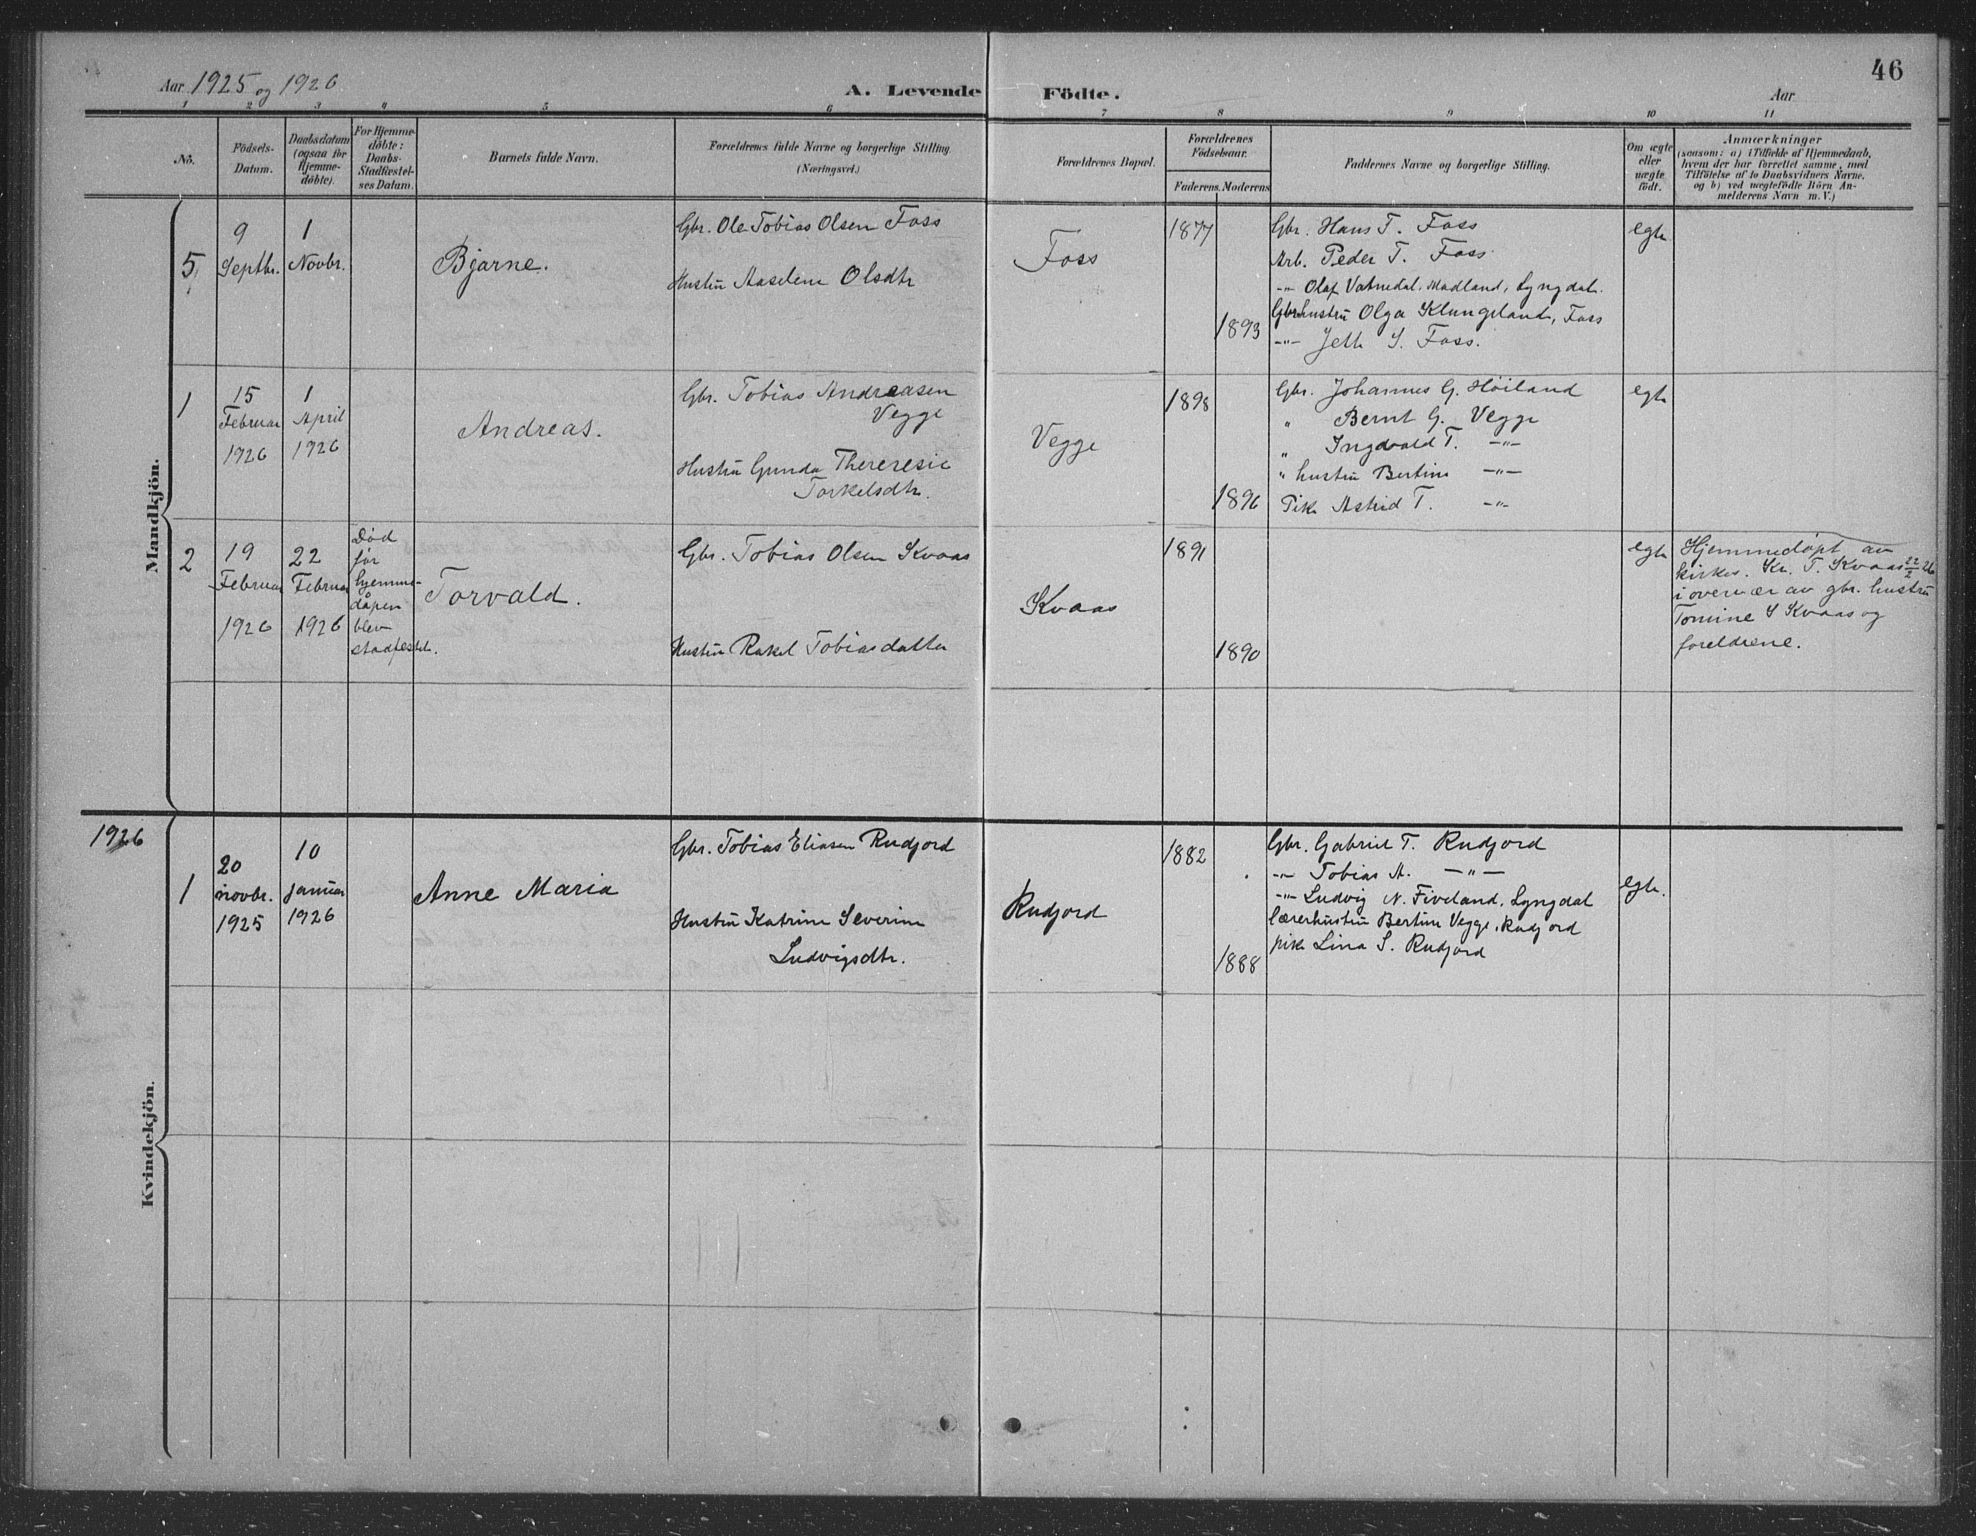 46
Aar 1925 og 1926
A. Levende Födte.
Aar
1 2 3 4 5 6 7 8 9 10 11
No.
Födsels-
Datum.
Daabsdatum
(ogsaa for
Hjemme-
döbte).
For Hjemme-
döbte:
Daabs-
Stadfæstel-
ses Datum.
Barnets fulde Navn.
Forældrenes fulde Navne og borgerlige Stilling
(Næringsvei.)
Forældrenes Bopæl.
Forældrenes
Födselsaar.
Faderens. Moderens
Faddernes Navne og borgerlige Stilling.
Om ægte
eller
uægte
födt.
Anmærkninger
(saasom: a) i Tilfælde af Hjemmedaab,
hvem der har forrettet samme, med
Tilföielse af to Daabsvidners Navne,
og b) ved uægtefödte Börn An-
melderens Navn m. V.)
Mandkjön.
5.
9
Septbr.
1
Novbr.
Bjarne.
Gbr. Ole Tobias Olsen Foss
Hustru Aaselene Olsdtr
Foss
1877
1893
Gbr. Hans T. Foss
Arb. Peder T. Foss
-"- Olaf Vatnedal, Madland, Lyngdal.
Gbrhustru Olga Klungeland, Foss
-"- Jette S. Foss.
egte
1
15
Februar
1926
1
April
1926
Andreas.
Gbr. Tobias Andreasen
Vegge
Hustru Gunda Thereresie
Torkelsdtr.
Vegge
1898
1896
Gbr. Johannes G. Höiland
" Bernt G. Vegge
" Ingvald T. -"-
" hustru Bertine -"-
Pike Astrid T. -"-
egte
2
19
Februar
1926
22
Februar
1926
Død
før
hjemme-
dåpen
blev
stadfestet.
Torvald.
Gbr. Tobias Olsen Kvaas
Hustru Rakel Tobiasdatter
Kvaas
1891
1890
egte
Hjemmedøpt av
kirkes. Kr. T. Kvaas 22/2 26
i overvær av gbr. hustru
Tomine S Kvaas og
foreldrene.
1926
Kvindekjön.
1
20
novbr.
1925
10
januar
1926
Anne Maria
Gbr. Tobias Eliasen Rudjord
Hustru Katrine Severine
Ludvigsdtr.
Rudjord
1882
1888
Gbr. Gabriel T. Rudjord
-"- Tobias A. -"-
-"- Ludvig N. Fiveland, Lyngdal
Lærerhustru Bertine Vegge, Rudjord
pike Lina S. Rudjord
egte.